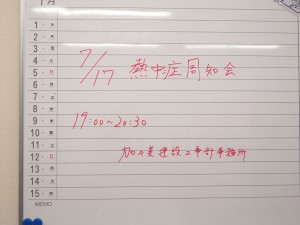 月
1 水
2 木
3 金
4 土
5 日
6 月
7 火
8 水
9 木
10 金
11 土
12 日
13 月
14 火
15 水
MEMO
7/17 熱中症周知会
19:00~20:30
建設工事計事務所